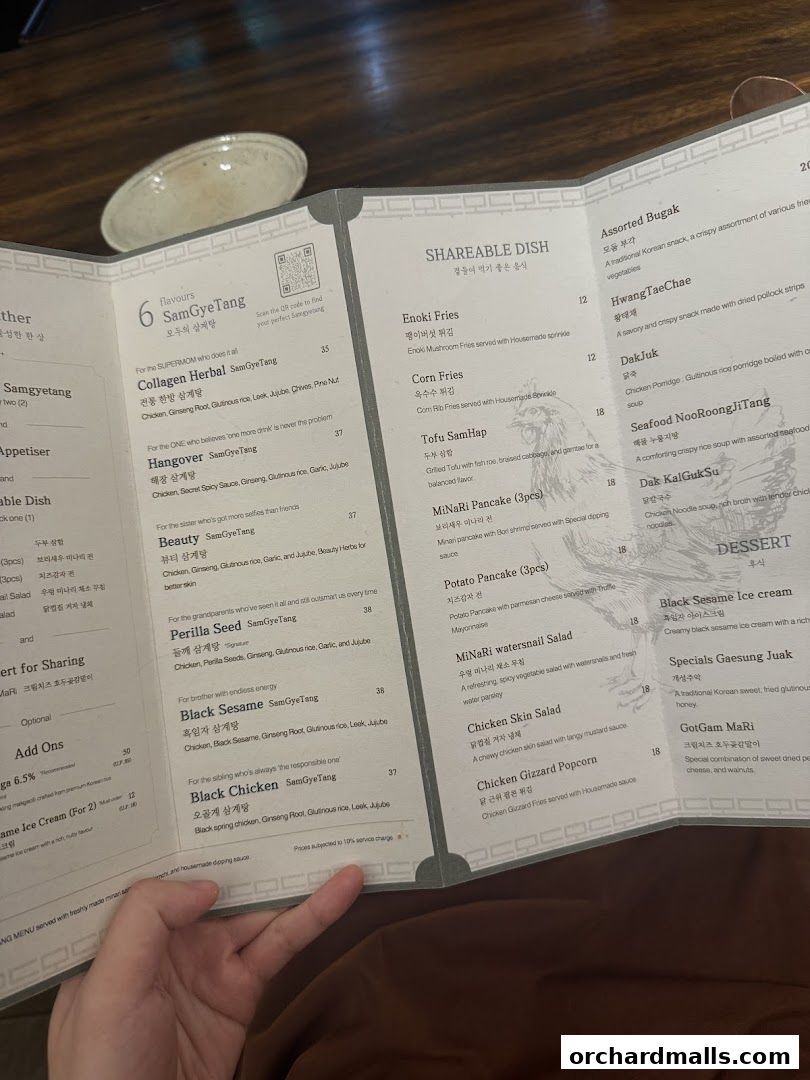 ther
한 상
Samgyetang
two (2)
nd
Appetiser
and
able Dish
ck one (1)
두부 삼합
(3pcs) 보리새우 미나리 전
(3pcs) 치즈감자 전
ail Salad 우렁 미나리 채소 무침
alad 닭껍질 겨자 냉채
and
ert for Sharing
MaRi 크림치즈 호두곶감말이
Optional
Add Ons
50
ga 6.5% *Recommended
ame Ice Cream (For 2) *Must order 12
크림
same ice cream with a rich, nutty flavour
ANG MENU served with freshly made minari
and housemade dipping sauce.
6 flavours
SamGyeTang
모두의 삼계탕
Scan the QR code to find
your perfect Samgyetang
For the SUPERMOM who does it all
Collagen Herbal SamGyeTang 35
전통 한방 삼계탕
Chicken, Ginseng Root, Glutinous rice, Leek, Jujube, Chives, Pine Nut
For the ONE who believes 'one more drink' is never the problem
Hangover SamGyeTang 37
해장 삼계탕
Chicken, Secret Spicy Sauce, Ginseng, Glutinous rice, Garlic, Jujube
For the sister who's got more selfies than friends
Beauty SamGyeTang 37
뷰티 삼계탕
Chicken, Ginseng, Glutinous rice, Garlic, and Jujube, Beauty Herbs for
better skin
For the grandparents who've seen it all and still outsmart us every time
Perilla Seed SamGyeTang 38
들깨 삼계탕 *Signature
Chicken, Perilla Seeds, Ginseng, Glutinous rice, Garlic, and Jujube
For brother with endless energy
Black Sesame SamGyeTang 38
흑임자 삼계탕
Chicken, Black Sesame, Ginseng Root, Glutinous rice, Leek, Jujube
For the sibling who's always 'the responsible one'
Black Chicken SamGyeTang 37
오골계 삼계탕
Black spring chicken, Ginseng Root, Glutinous rice, Leek, Jujube
Prices subjected to 10% service charge
SHAREABLE DISH
곁들여 먹기 좋은 음식
Enoki Fries 12
팽이버섯 튀김
Enoki Mushroom Fries served with Housemade sprinkle
Corn Fries 12
옥수수 튀김
Corn Rib Fries served with Housemade Sprinkle
Tofu SamHap 18
두부 삼합
Grilled Tofu with fish roe, braised cabbage, and gamtae for a
balanced flavor.
MiNaRi Pancake (3pcs) 18
보리새우 미나리 전
Minari pancake with Bori shrimp served with Special dipping
sauce
Potato Pancake (3pcs) 18
치즈감자 전
Potato Pancake with parmesan cheese served with Truffle
Mayonnaise
MiNaRi watersnail Salad 18
우렁 미나리 채소 무침
A refreshing, spicy vegetable salad with watersnails and fresh
water parsley
Chicken Skin Salad 18
닭껍질 겨자 냉채
A chewy chicken skin salad with tangy mustard sauce.
Chicken Gizzard Popcorn 18
닭 근위 팝콘 튀김
Chicken Gizzard Fries served with Housemade sauce
Assorted Bugak 20
모둠 부각
A traditional Korean snack, a crispy assortment of various frie
vegetables
HwangTaeChae
황태채
A savory and crispy snack made with dried pollock strips
DakJuk
닭죽
Chicken Porridge : Gultinous rice porridge boiled with
soup
Seafood NooRoongJiTang
해물 누룽지탕
A comforting crispy rice soup with assorted seafood
Dak KalGukSu
닭칼국수
Chicken Noodle soup, rich broth with tender chic
noodles.
DESSERT
후식
Black Sesame Ice cream
흑임자 아이스크림
Creamy black sesame ice cream with a rich
Specials Gaesung Juak
개성주악
A traditional Korean sweet, fried glutinous
honey.
GotGam MaRi
크림치즈 호두곶감말이
Special combination of sweet dried pe
cheese, and walnuts.
orchardmalls.com